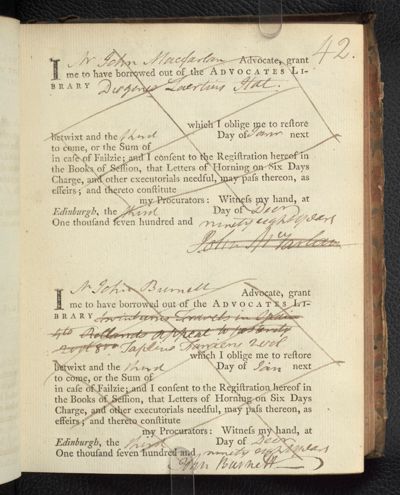 42.
I Mr John Macfarlan Advocate, grant
me to have borrowed out of the ADVOCATES LI-
BRARY Diogenes Laertius Ital.
which I oblige me to reſtore
betwixt and the third Day of Janr next
to come, or the Sum of
in caſe of Failzie; and I conſent to the Regiſtration hereof in
the Books of Seſſion, that Letters of Horning on Six Days
Charge, and other executorials needful, may paſs thereon, as
effeirs; and thereto conſtitute
my Procurators: Witneſs my hand, at
Edinburgh, the third Day of Decr
One thouſand ſeven hundred and ninety eight years
John McFarlan
I Mr John Burnett Advocate, grant
me to have borrowed out of the ADVOCATES LI-
BRARY Swinburnes Travels in Spain
4to Rollands appeal to
8vo Taplins Farriery 2 vol
which I oblige me to reſtore
betwixt and the third Day of Jan next
to come, or the Sum of
in caſe of Failzie; and I conſent to the Regiſtration hereof in
the Books of Seſſion, that Letters of Horning on Six Days
Charge, and other executorials needful, may paſs thereon, as
effeirs; and thereto conſtitute
my Procurators: Witneſs my hand, at
Edinburgh, the third Day of Decr
One thouſand ſeven hundred and ninety eight years
John Burnett